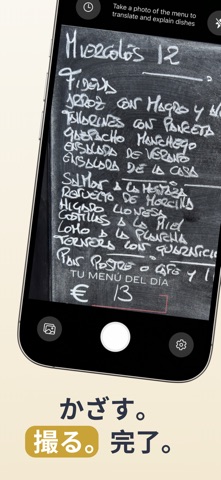 Take a photo of the menu to
translate and explain dishes
MIERCOLES 12
FIDEUA
ARROZ CON MAGRO Y
TALLARINES CON PANCETA
GAZPACHO MANCHEGO
ENSALADA DE VERANO
ENSALADA DE LA CASA
SALMON A LA
REVUELTO DE MORCILLA
HIGADO LIONESA
COSTILLAS A LA MIEL
LOMO A LA PLANCHA
TERNERA CON GUARNICIO
PAN POSTRE O CAFE Y 1
TU MENÚ DEL DÍA
€ 13
かざす。
撮る。完了。